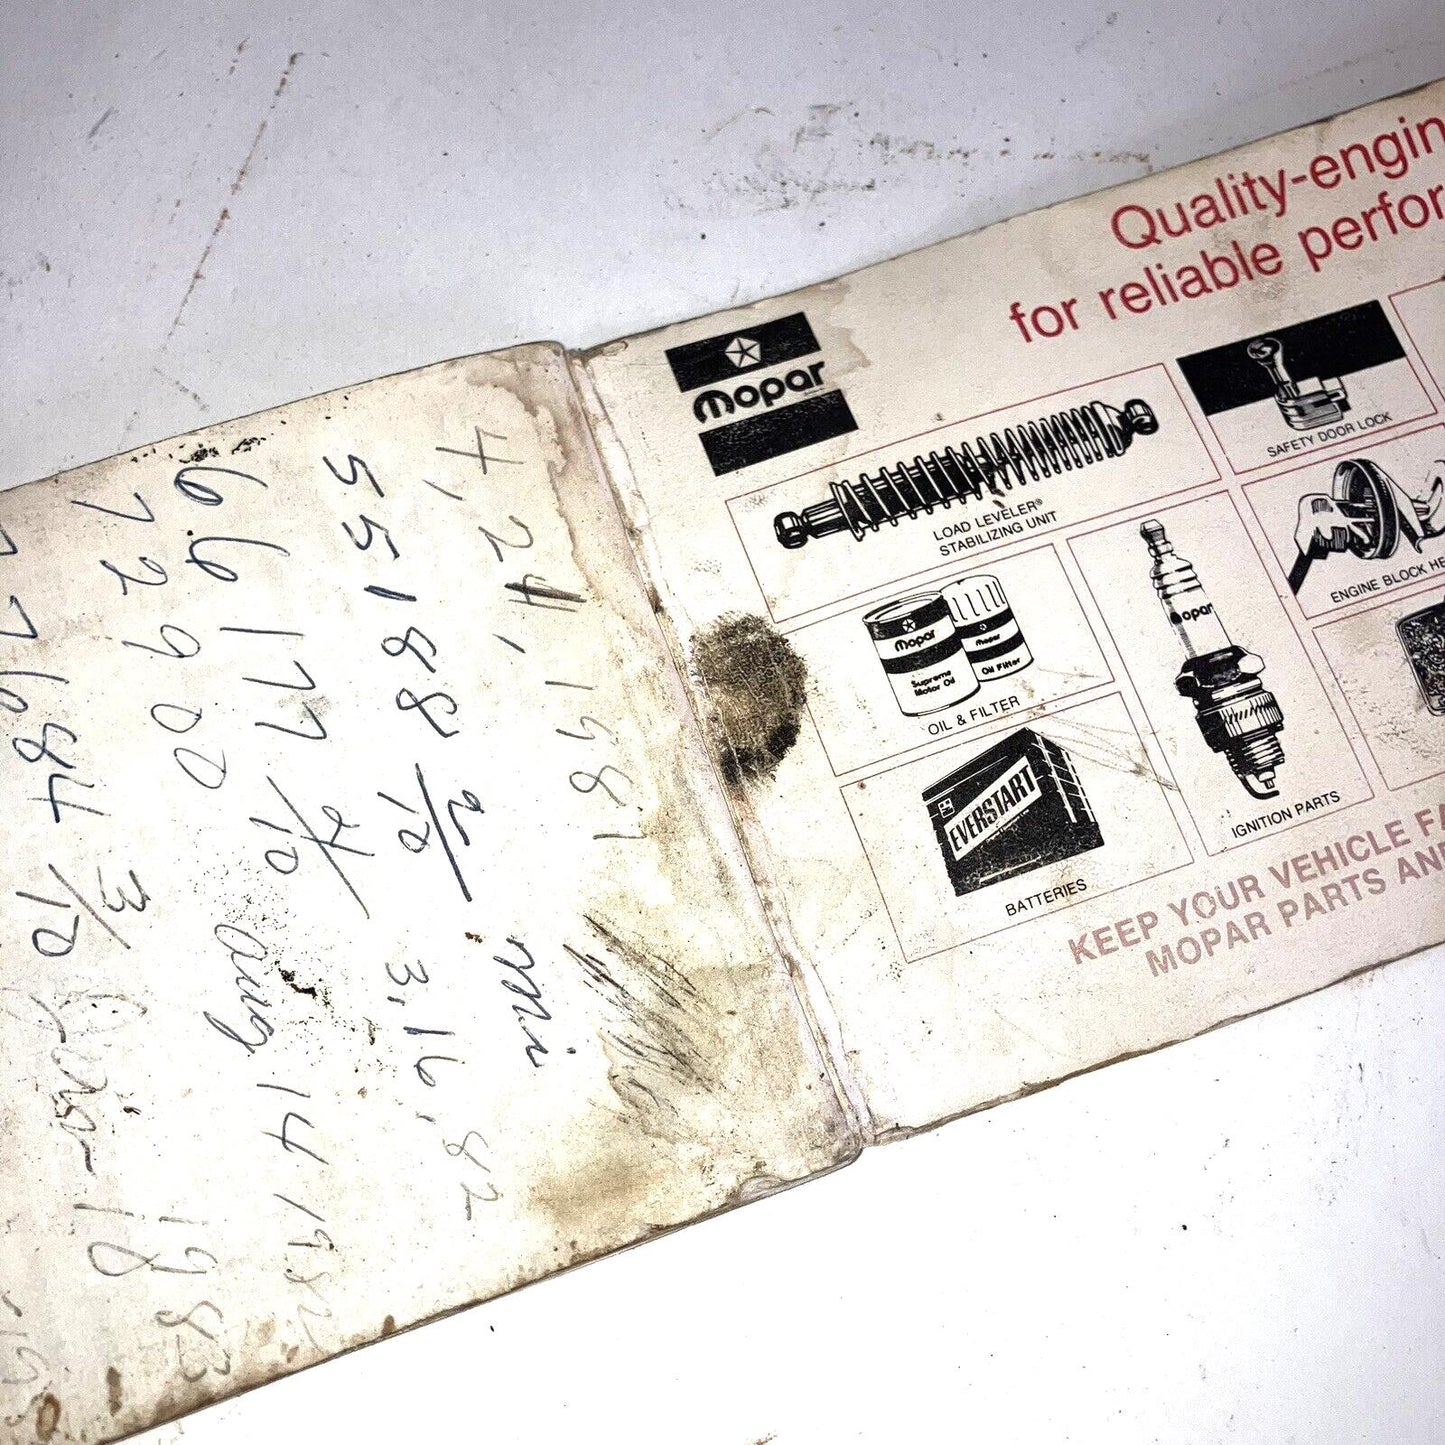 4, 24, 1981
55188 2/10 mi
3, 16, 82
66177 4/10
Aug 14 1982
72900
18 1983
77684 3/10
Quality-engin
for reliable perfor
Mopar
LOAD LEVELER®
STABILIZING UNIT
SAFETY DOOR LOCK
Mopar
Supreme
Motor Oil
Mopar
Oil Filter
OIL & FILTER
Mopar
IGNITION PARTS
ENGINE BLOCK HE
EVERSTART
BATTERIES
KEEP YOUR VEHICLE FA
MOPAR PARTS AND